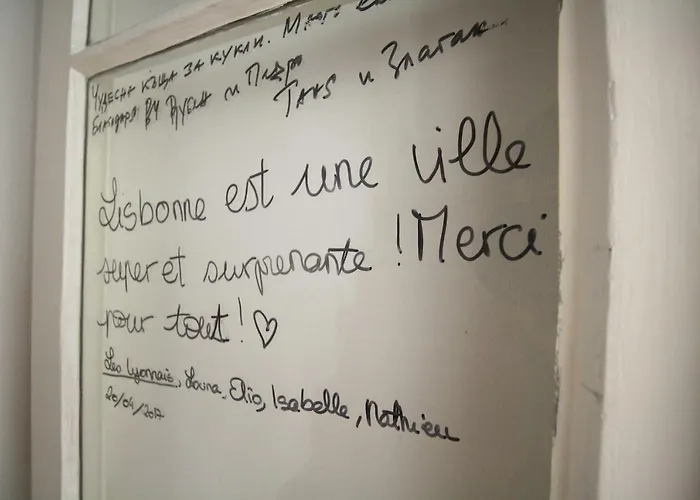 Чудесна къща за кукли. Много
Благодаря Ви
Так5 и Златан
Lisbonne est une ville
super et surprenante ! Merci
pour tout ! ♡
Les Lyonnais, Louna, Elio, Isabelle, Mathieu
20/04/2017